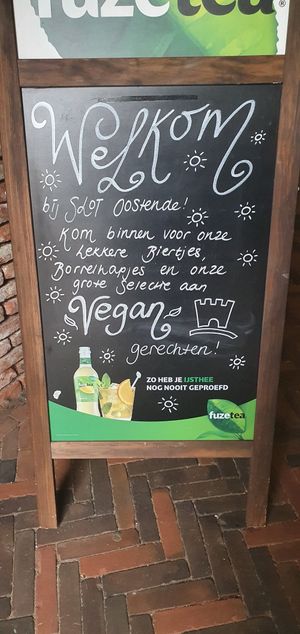 fuzetea®
Welkom
bij SLOT Oostende!
Kom binnen voor onze
lekkere Biertjes,
Borrelhapjes en onze
grote Selectie aan
Vegan
gerechten!
ZO HEB JE IJSTHEE
NOG NOOIT GEPROEFD
fuzetea